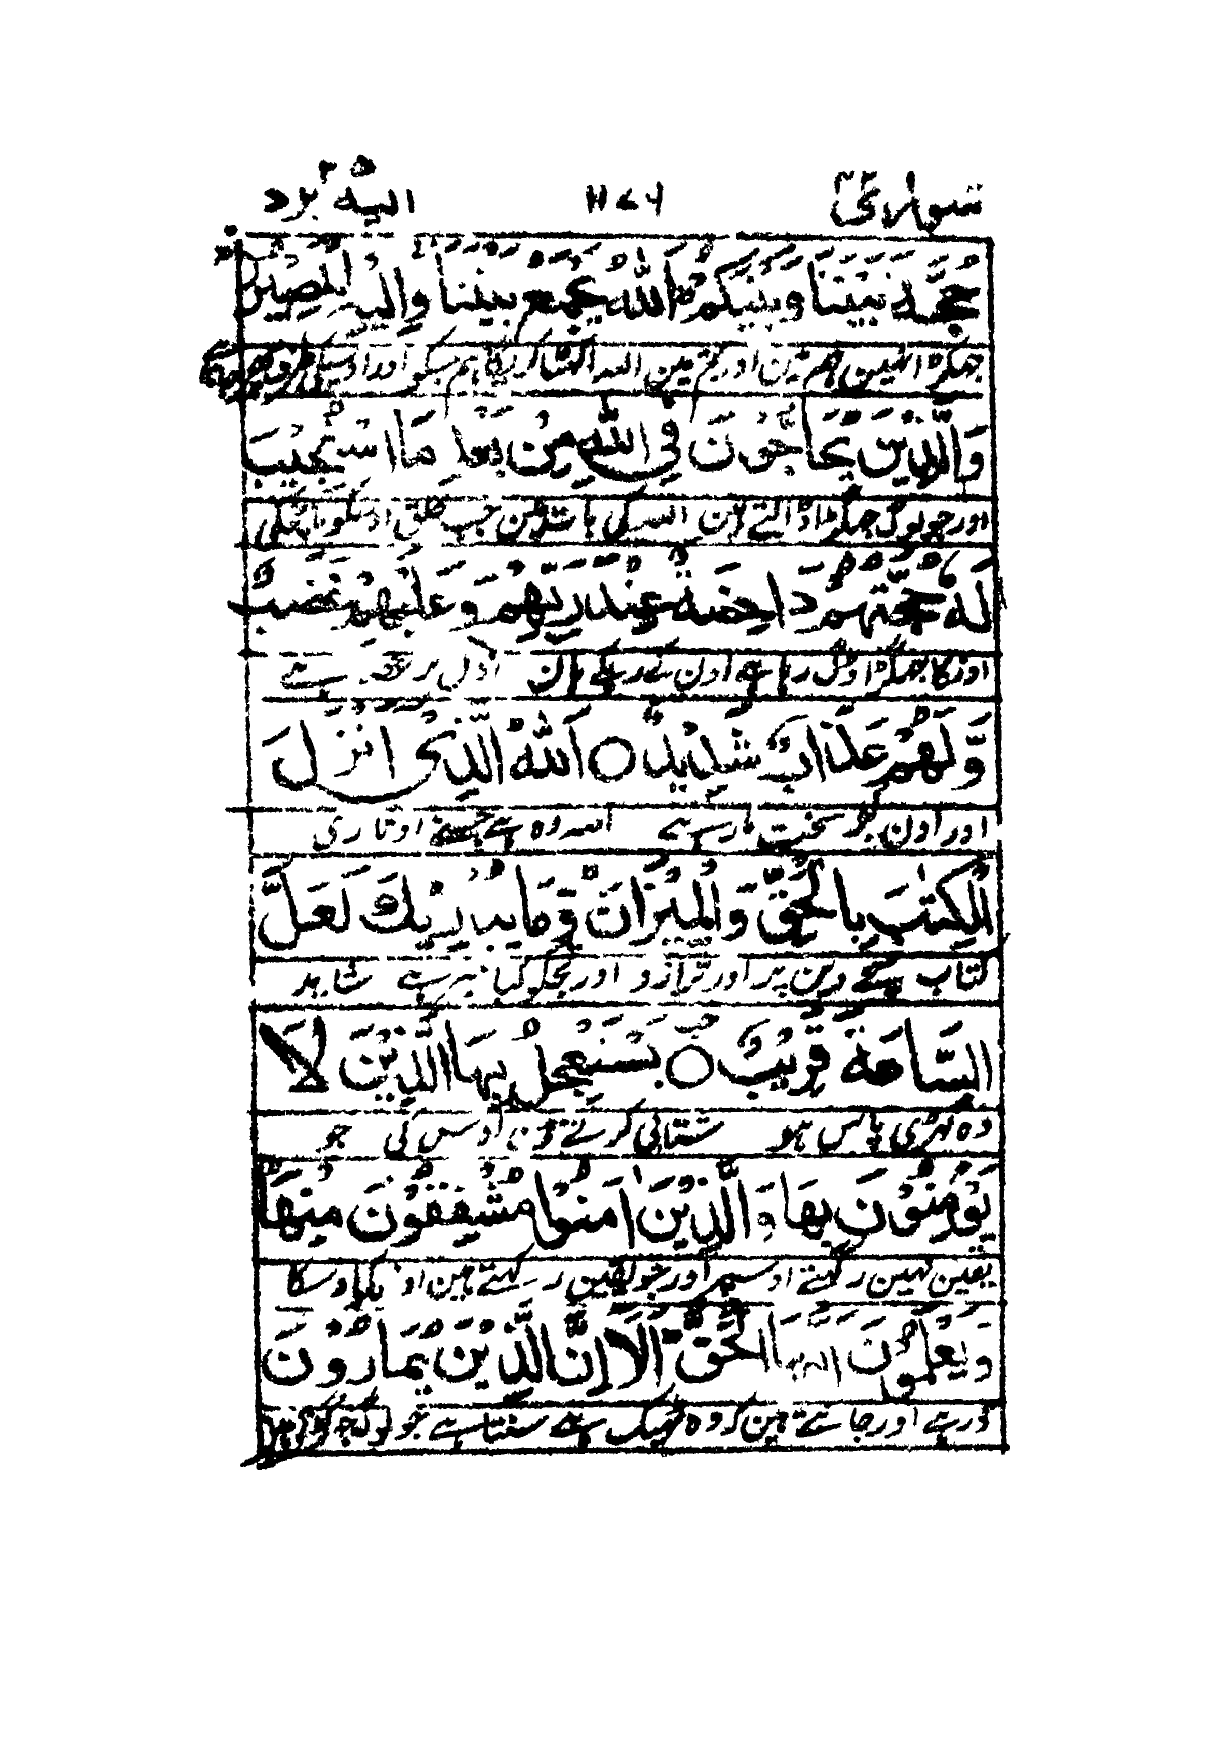 الیه یرد ۲۵ ۱۱۷۶ شوریٰ ۴۲
حُجَّةَ بَيْنَنَا وَبَيْنَكُمْ اَللّٰهُ يَجْمَعُ بَيْنَنَا وَاِلَيْهِ الْمَصِيْرُ
جھگڑا نہین ہم مین اور تم مین اللہ اکٹھا کریگا ہم سبکو اور اوسیکی طرف پھر جانا ہے
وَالَّذِيْنَ يُحَاجُّوْنَ فِي اللّٰهِ مِنْ بَعْدِ مَا اسْتُجِيْبَ
اور جو لوگ جھگڑا ڈالتے ہین اللہ کی بات مین جب خلق اوسکو مان چکی
لَهٗ حُجَّتُهُمْ دَاحِضَةٌ عِنْدَ رَبِّهِمْ وَعَلَيْهِمْ غَضَبٌ
اونکا جھگڑا ڈگ رہا ہے اون کے رب کے ہان اور اون پر غصہ ہے
وَّلَهُمْ عَذَابٌ شَدِيْدٌ ○ اَللّٰهُ الَّذِيْ اَنْزَلَ
اور اون کو سخت مار ہے اللہ وہ ہے جسنے اوتاری
الْكِتٰبَ بِالْحَقِّ وَالْمِيْزَانَ وَمَا يُدْرِيْكَ لَعَلَّ
کتاب سچے دین پر اور ترازو اور تجکو کیا خبر ہے شاید
السَّاعَةَ قَرِيْبٌ ○ يَسْتَعْجِلُ بِهَا الَّذِيْنَ لَا
وہ گھڑی پاس ہو شتابی کرتے ہین اوس کی جو
يُؤْمِنُوْنَ بِهَا وَالَّذِيْنَ اٰمَنُوْا مُشْفِقُوْنَ مِنْهَا
یقین نہین رکھتے اوسپر اور جو یقین رکھتے ہین اونکو اوسکا
وَيَعْلَمُوْنَ اَنَّهَا الْحَقُّ اَلَا اِنَّ الَّذِيْنَ يُمَارُوْنَ
ڈر ہے اور جانتے ہین کہ وہ ٹھیک ہے سنتا ہے جو لوگ جھگڑتے ہین